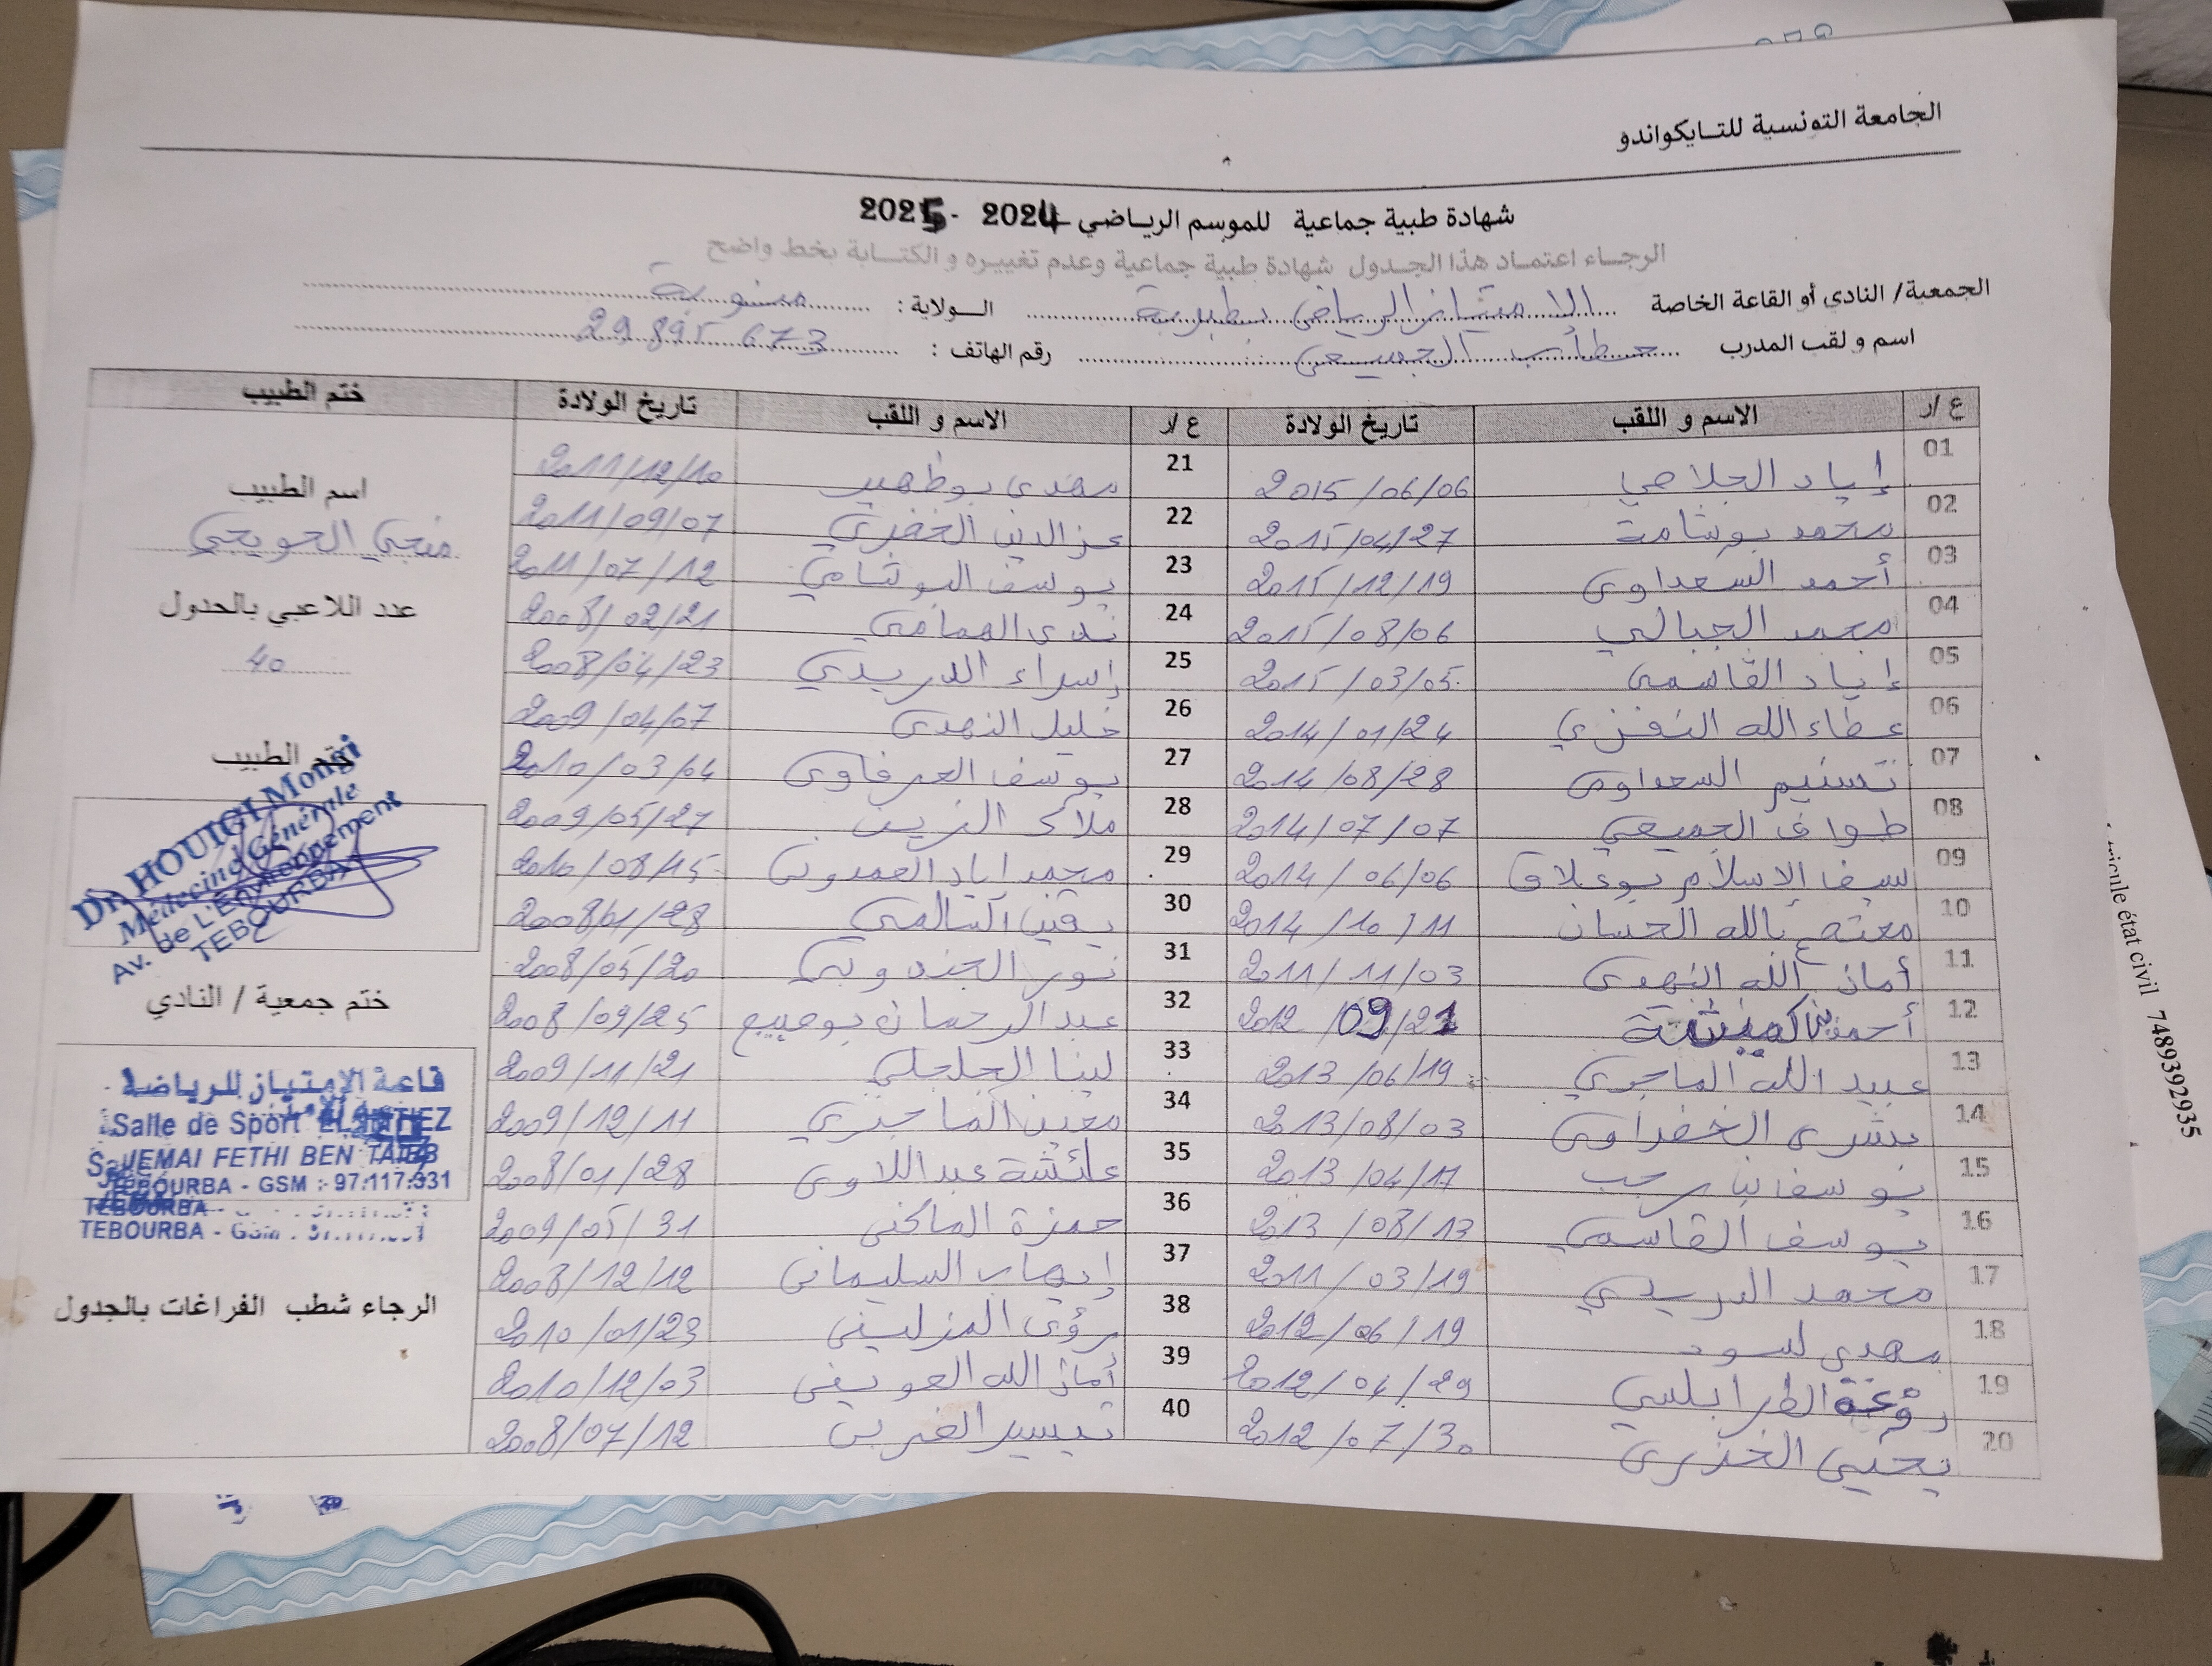 الجامعة التونسية للتايكواندو
شهادة طبية جماعية للموسم الرياضي 2024 - 2025
الرجاء اعتماد هذا الجدول شهادة طبية جماعية وعدم تغييره و الكتابة بخط واضح
الجمعية/ النادي أو القاعة الخاصة الامتياز الرياضي بطبربة الولاية : منوبة
اسم و لقب المدرب الجميعي رقم الهاتف : 29 895 673
ع /ر الاسم و اللقب تاريخ الولادة ع /ر الاسم و اللقب تاريخ الولادة ختم الطبيب
01 إياد الجلاصي 2015/06/06 21 مهدي بوظهير 2011/12/10
02 محمد بوشامة 2015/04/27 22 عز الدين 2011/09/07
03 أحمد السعداوي 2015/12/19 23 يوسف 2011/07/12
04 محمد الجبالي 2015/08/06 24 ندى الهمامي 2008/02/21
05 إياد القاسمي 2015/03/05 25 إسراء الدريدي 2008/04/23
06 عطاء الله النفزي 2014/01/24 26 خليل النهدي 2009/04/07
07 تسنيم السعداوي 2014/08/28 27 يوسف العرفاوي 2010/03/04
08 طواف الجميعي 2014/07/07 28 ملاك الزين 2009/05/27
09 سيف الإسلام بوعلاق 2014/06/06 29 محمد اياد العمدوني 2010/08/15
10 بالله الحسان 2014/10/11 30 يقين السالمي 28
11 أمان الله النهدي 2011/11/03 31 نور الجندوبي 2008/05/20
12 أحمد 2012/09/21 32 عبد الرحمان 2008/09/25
13 عبيد الله الماجري 2013/06/19 33 لينا 2009/11/21
14 بشرى الخضراوي 2013/08/03 34 الماجري 2009/12/11
15 يوسف بن رجب 2013/04/17 35 عائشة عبداللاوي 2008/01/28
16 يوسف القاسمي 2013/08/13 36 حمزة الماكني 2009/05/31
17 محمد الدريدي 2011/03/19 37 إيهاب السليماني 2008/12/12
18 مهدي لسود 2012/06/19 38 رؤى المزليني 2010/01/23
19 الطرابلسي 2012/04/29 39 أمان الله العويني 2010/12/03
20 يحيى الخذري 2012/07/30 40 تيسير الغربي 2008/07/12
اسم الطبيب
منجي الحويجي
عدد اللاعبي بالجدول
40
ختم الطبيب
Dr. HOUIGI Mongi
Médecine Générale
Av. de L'Environnement
TEBOURBA
ختم جمعية / النادي
قاعة الإمتياز للرياضة
Salle de Sport EL IMTIEZ
JEMAI FETHI BEN TAIEB
TEBOURBA - GSM : 97.117.931
TEBOURBA
TEBOURBA - GSM :
الرجاء شطب الفراغات بالجدول
état civil 7489392935